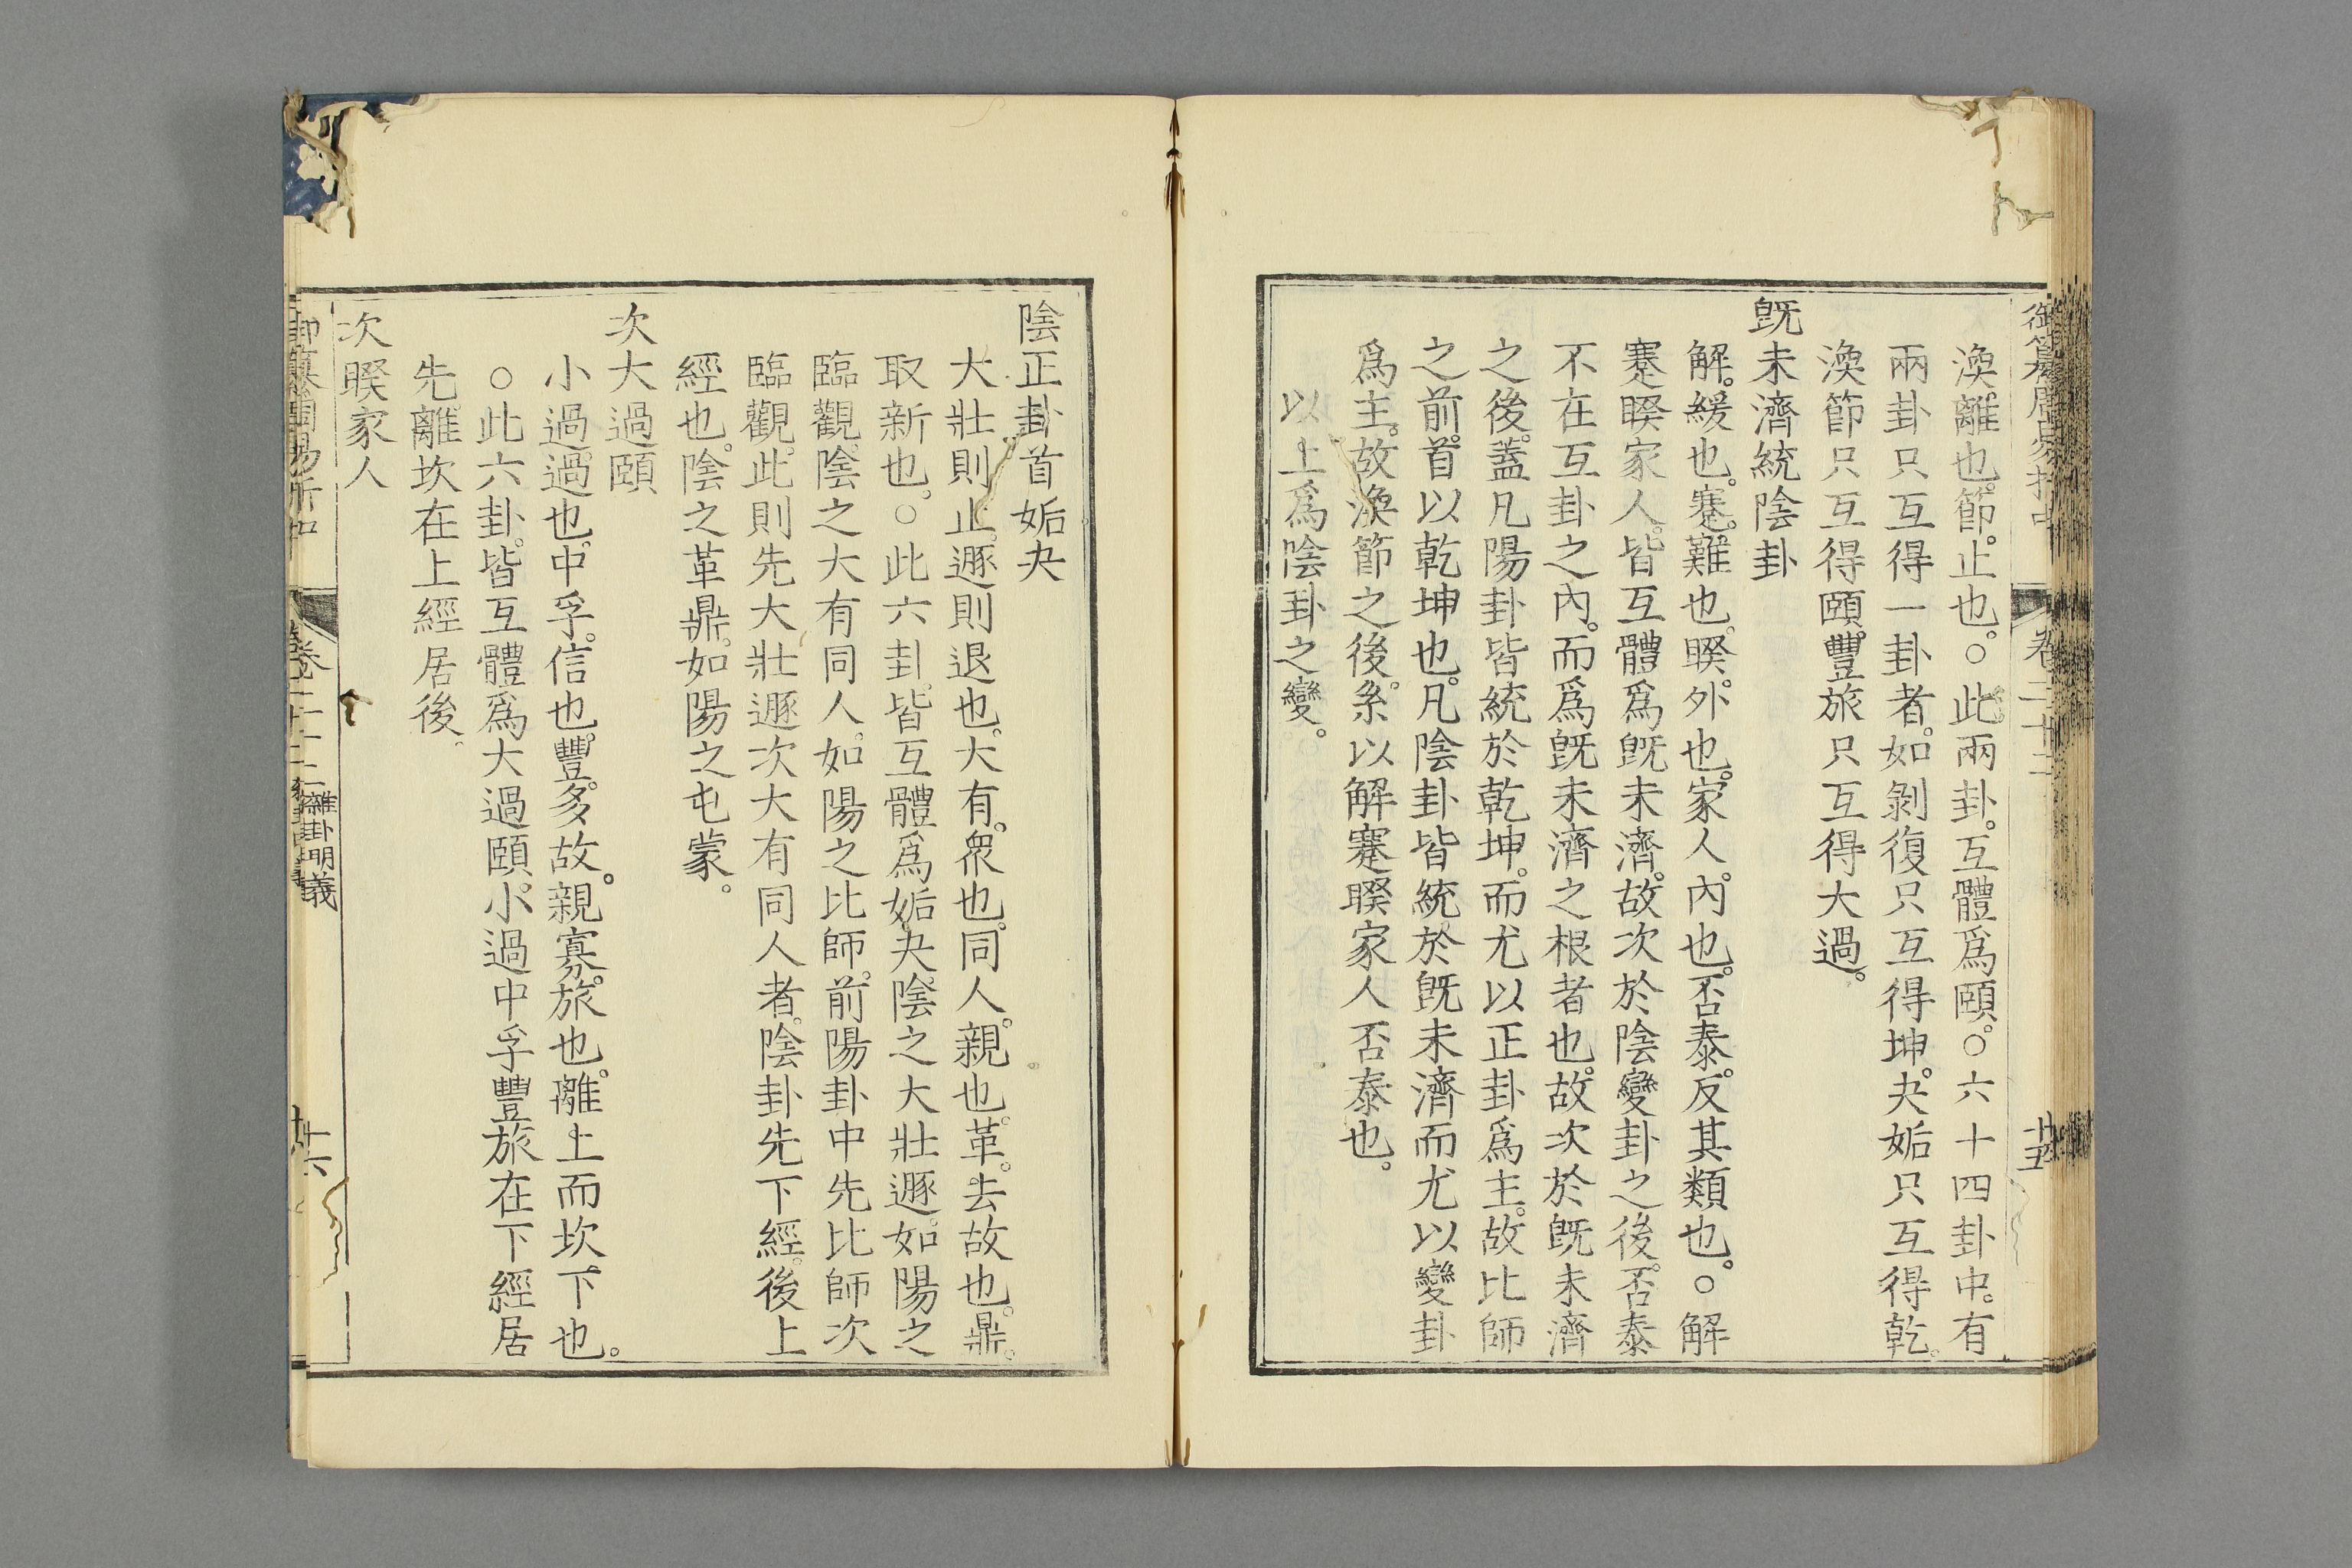 渙。離也。節。止也。○此兩卦。互體爲頤。○六十四卦中。有
兩卦只互得一卦者。如剝復只互得坤。夬姤只互得乾。
渙節只互得頤。豐旅只互得大過。
旣未濟統陰卦
解。緩也。蹇。難也。睽。外也。家人。內也。否泰。反其類也。○解
蹇睽家人。皆互體爲旣未濟。故次於陰變卦之後。否泰
不在互卦之內。而爲旣未濟之根者也。故次於旣未濟
之後。蓋凡陽卦皆統於乾坤。而尤以正卦爲主。故比師
之前。首以乾坤也。凡陰卦皆統於旣未濟而尤以變卦
爲主。故渙節之後。系以解蹇睽家人否泰也。
以上爲陰卦之變。
陰正卦首姤夬
大壯則止。遯則退也。大有。衆也。同人。親也。革。去故也。鼎。
取新也。○此六卦。皆互體爲姤夬。陰之大壯遯。如陽之
臨觀。陰之大有同人。如陽之比師。前陽卦中先比師次
臨觀。此則先大壯遯次大有同人者。陰卦先下經。後上
經也。陰之革鼎。如陽之屯蒙。
次大過頤
小過。過也。中孚。信也。豐。多故。親寡。旅也。離上而坎下也。
○此六卦。皆互體爲大過頤。小過中孚豐旅在下經居
先。離坎在上經居後。
次睽家人
卷二十二
雜卦明義
十六